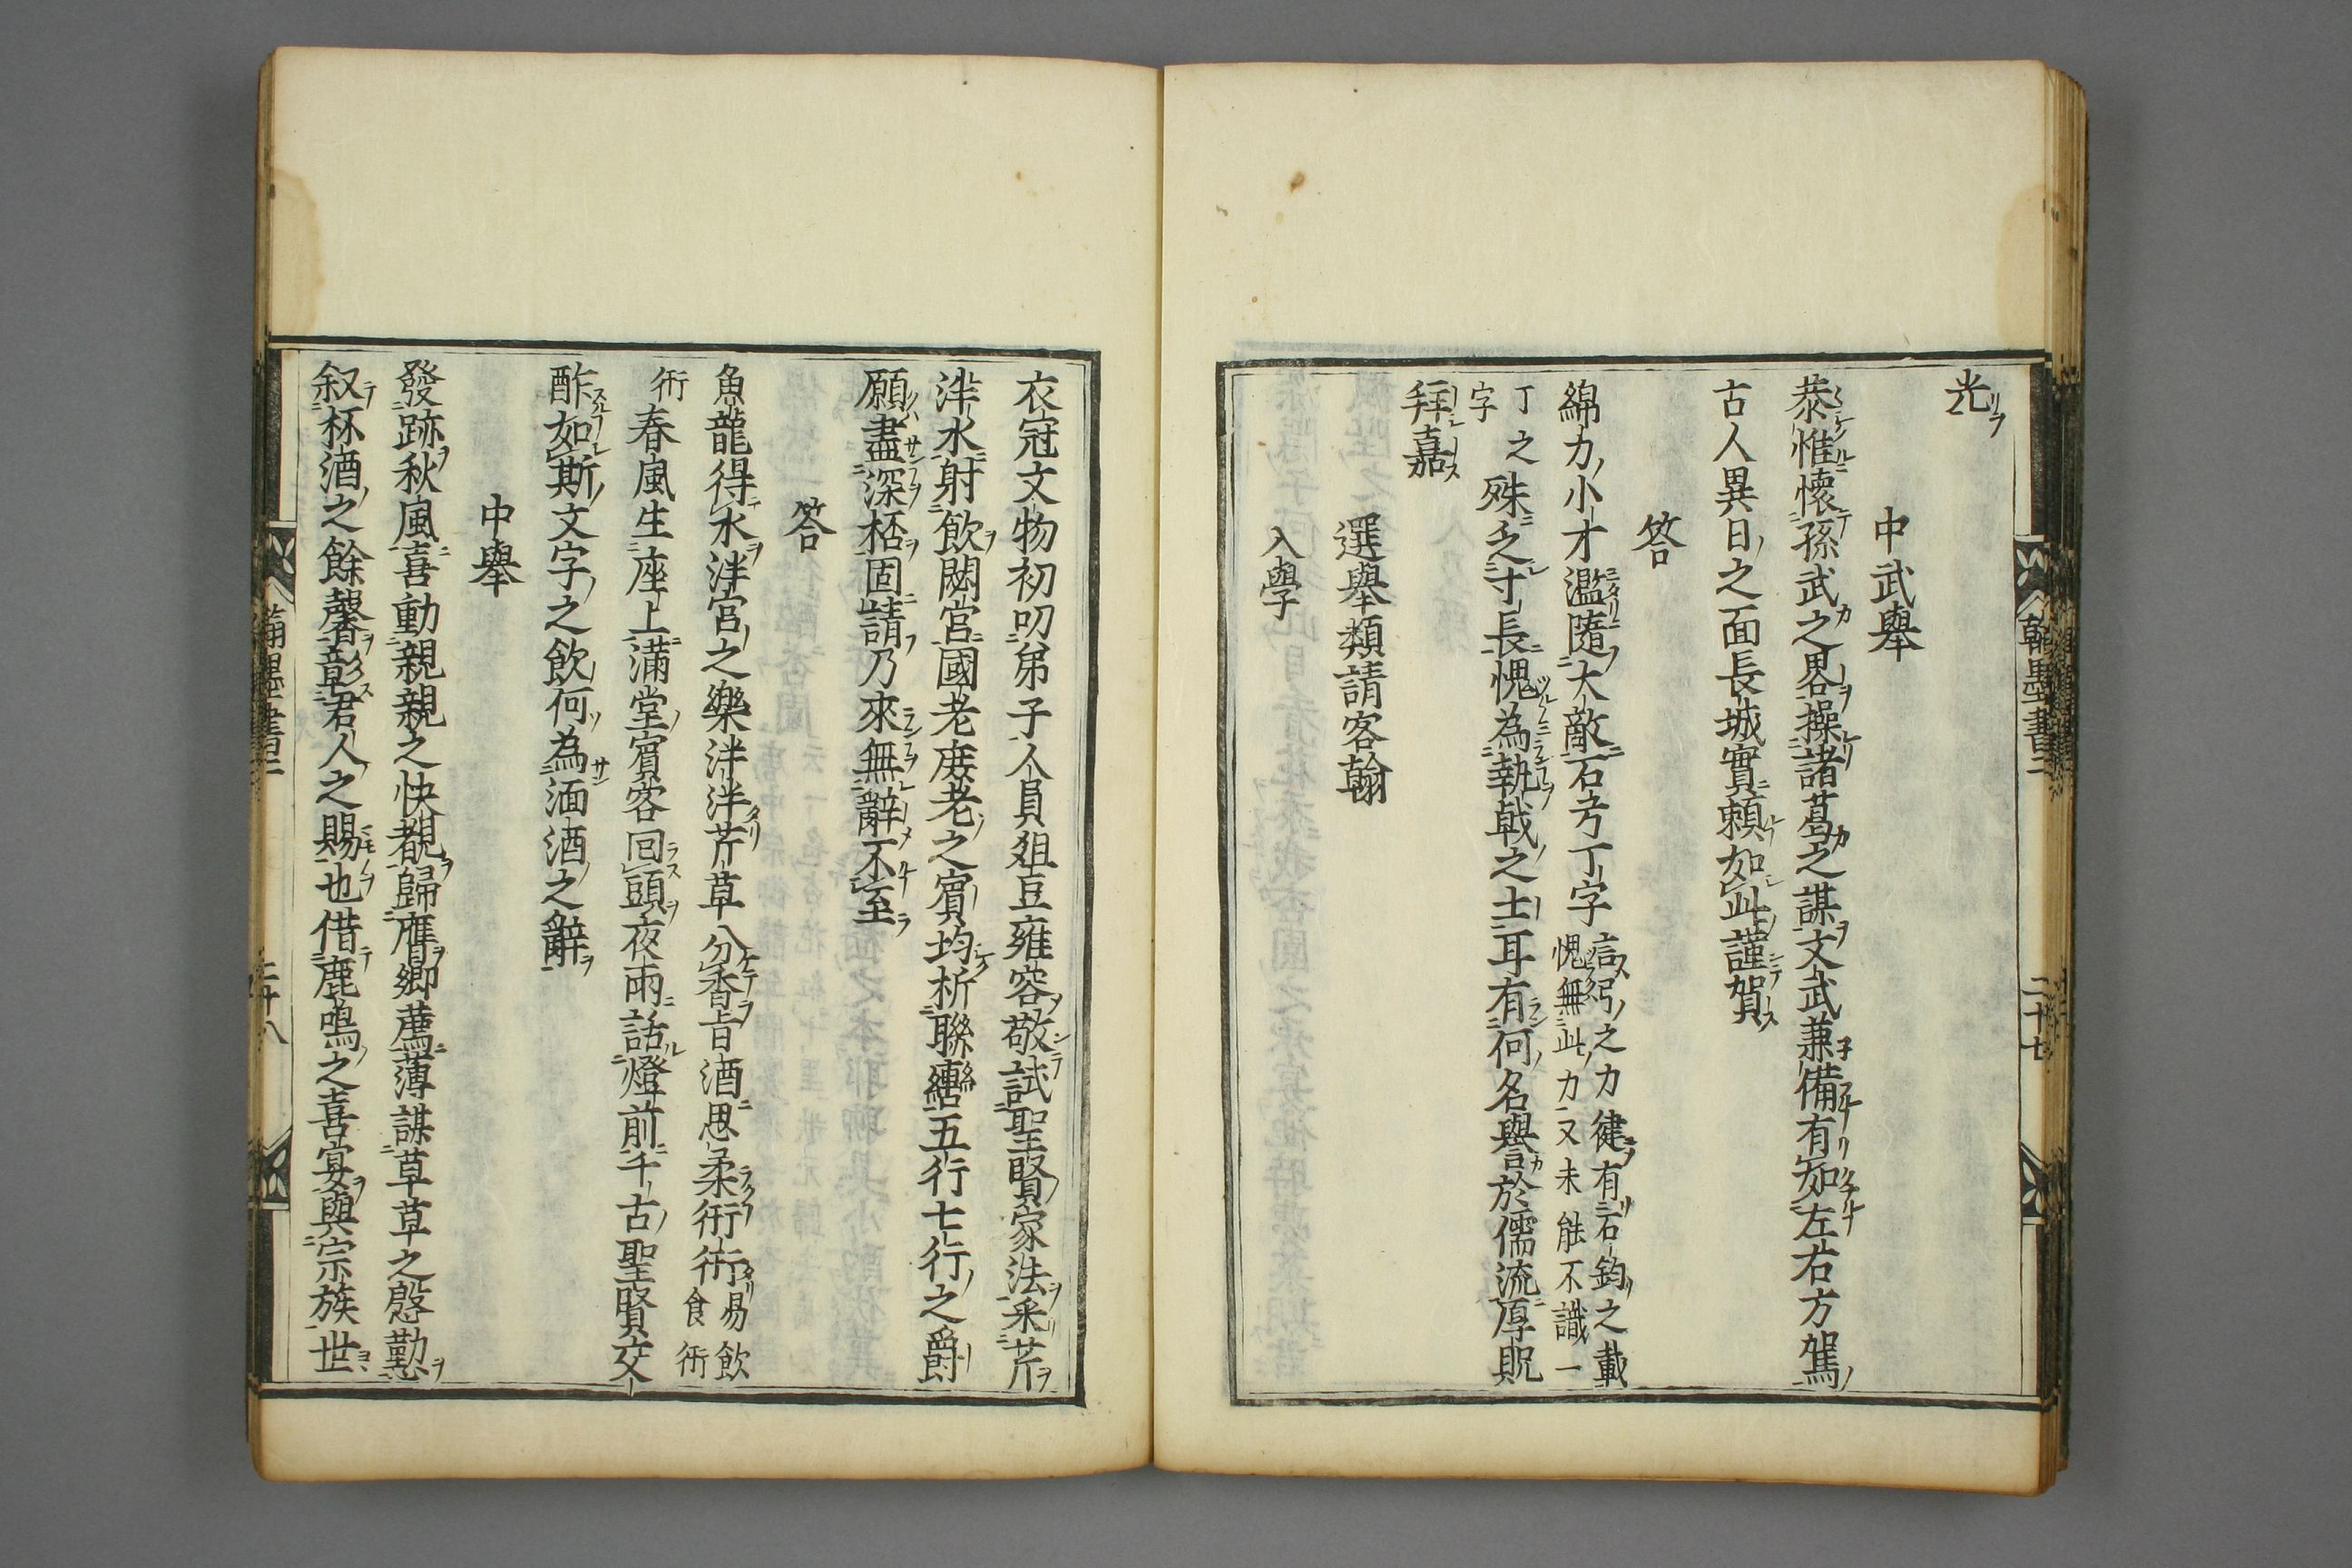 光
中武舉
恭惟懷孫武之畧操諸葛之謀文武兼備有如左右方駕
古人異日之面長城實賴如此謹賀
答
綿力小才濫隨大敵石弓丁字言弓之力徤有石鈞之載
愧無此力又未能不識一
丁之
字
殊乏寸長愧為執戟之士耳有何名譽於儒流厚貺
拜嘉
選舉類請客翰
入學
翰墨書二
二十七
衣冠文物初叨弟子人員俎豆雍容敬試聖賢家法采芹
泮水射飲閟宮國老庶老之賓均析聯鑣五行七行之爵
願盡深桮固請乃來無辭不至
答
魚龍得水泮宮之樂泮泮芹草八分香旨酒思柔衎衎易飲
食衎
衎春風生座上滿堂賓客回頭夜雨話燈前千古聖賢交
酢如斯文字之飲何為湎酒之辭
中舉
發跡秋風喜動親親之快覩歸鴈鄉薦薄謀草草之慇懃
叙杯酒之餘馨彰君人之賜也借鹿鳴之喜宴與宗族世
翰墨書二
二十八